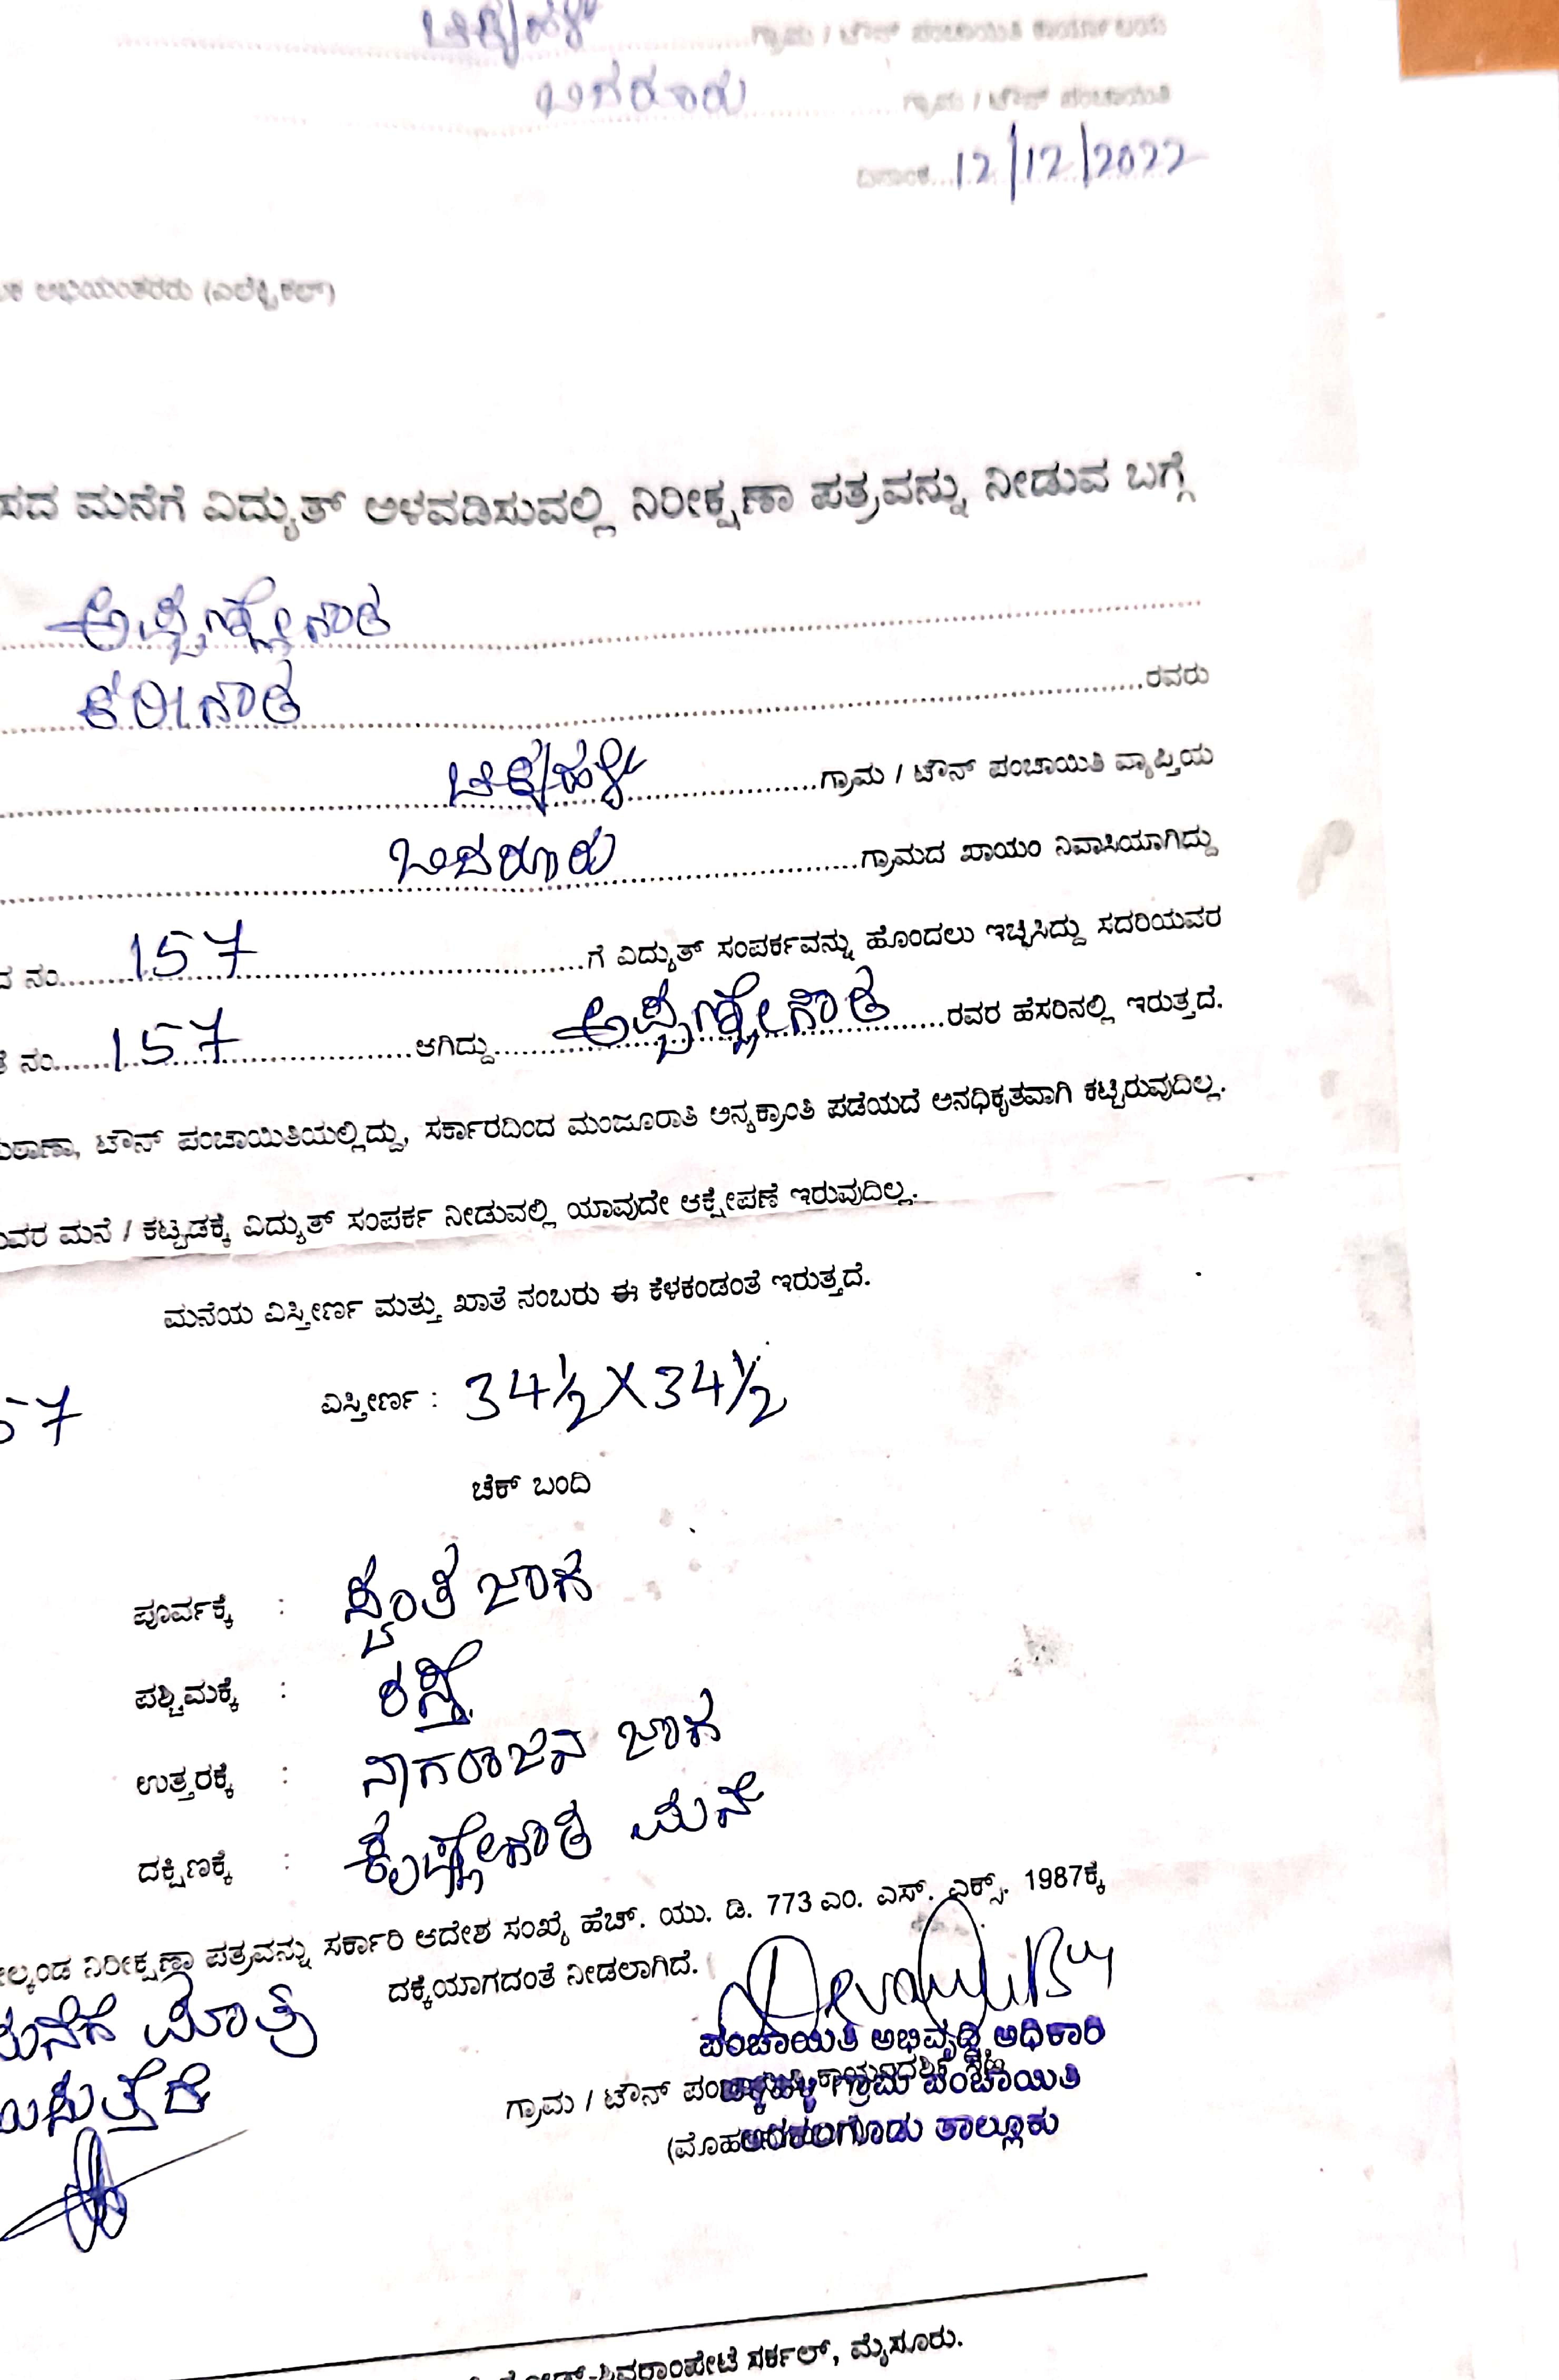 ಚಿಕ್ಕಹಳ್ಳಿ ಗ್ರಾಮ / ಟೌನ್ ಪಂಚಾಯಿತಿ ಕಾರ್ಯಾಲಯ
ಬಿದರೂರು ಗ್ರಾಮ / ಟೌನ್ ಪಂಚಾಯಿತಿ
ದಿನಾಂಕ 12/12/2022
ಅಭಿಯಂತರರು (ಎಲೆಕ್ಟ್ರಿಕಲ್)
ಮನೆಗೆ ವಿದ್ಯುತ್ ಅಳವಡಿಸುವಲ್ಲಿ ನಿರೀಕ್ಷಣಾ ಪತ್ರವನ್ನು ನೀಡುವ ಬಗ್ಗೆ
ಅಪ್ಪಣ್ಣೇಗೌಡ
ಕರೀಗೌಡ ರವರು
ಚಿಕ್ಕಹಳ್ಳಿ ಗ್ರಾಮ / ಟೌನ್ ಪಂಚಾಯಿತಿ ವ್ಯಾಪ್ತಿಯ
ಬಿದರೂರು ಗ್ರಾಮದ ಖಾಯಂ ನಿವಾಸಿಯಾಗಿದ್ದು
ನಂ. 157 ಗೆ ವಿದ್ಯುತ್ ಸಂಪರ್ಕವನ್ನು ಹೊಂದಲು ಇಚ್ಛಿಸಿದ್ದು ಸದರಿಯವರ
ನಂ. 157 ಆಗಿದ್ದು ಅಪ್ಪಣ್ಣೇಗೌಡ ರವರ ಹೆಸರಿನಲ್ಲಿ ಇರುತ್ತದೆ.
ಠಾಣಾ, ಟೌನ್ ಪಂಚಾಯಿತಿಯಲ್ಲಿದ್ದು, ಸರ್ಕಾರದಿಂದ ಮಂಜೂರಾತಿ ಅನ್ಯಕ್ರಾಂತಿ ಪಡೆಯದೆ ಅನಧಿಕೃತವಾಗಿ ಕಟ್ಟಿರುವುದಿಲ್ಲ.
ಮನೆ / ಕಟ್ಟಡಕ್ಕೆ ವಿದ್ಯುತ್ ಸಂಪರ್ಕ ನೀಡುವಲ್ಲಿ ಯಾವುದೇ ಆಕ್ಷೇಪಣೆ ಇರುವುದಿಲ್ಲ.
ಮನೆಯ ವಿಸ್ತೀರ್ಣ ಮತ್ತು ಖಾತೆ ನಂಬರು ಈ ಕೆಳಕಂಡಂತೆ ಇರುತ್ತದೆ.
57 ವಿಸ್ತೀರ್ಣ : 34½ X 34½
ಚೆಕ್ ಬಂದಿ
ಪೂರ್ವಕ್ಕೆ : ಸ್ವಂತ ಜಾಗ
ಪಶ್ಚಿಮಕ್ಕೆ : ರಸ್ತೆ
ಉತ್ತರಕ್ಕೆ : ನಾಗರಾಜನ ಜಾಗ
ದಕ್ಷಿಣಕ್ಕೆ : ಕೃಷ್ಣೇಗೌಡ ಮನೆ
ನಿರೀಕ್ಷಣಾ ಪತ್ರವನ್ನು ಸರ್ಕಾರಿ ಆದೇಶ ಸಂಖ್ಯೆ ಹೆಚ್. ಯು. ಡಿ. 773 ಎಂ. ಎಸ್. ಎಕ್ಸ್. 1987ಕ್ಕೆ
ದಕ್ಕೆಯಾಗದಂತೆ ನೀಡಲಾಗಿದೆ.
ಮನೆಗೆ ಮಾತ್ರ
ಪಂಚಾಯಿತಿ ಅಭಿವೃದ್ಧಿ ಅಧಿಕಾರಿ
ಗ್ರಾಮ / ಟೌನ್
ಗ್ರಾಮ ಪಂಚಾಯಿತಿ
ತಾಲ್ಲೂಕು
ಸರ್ಕಲ್, ಮೈಸೂರು.